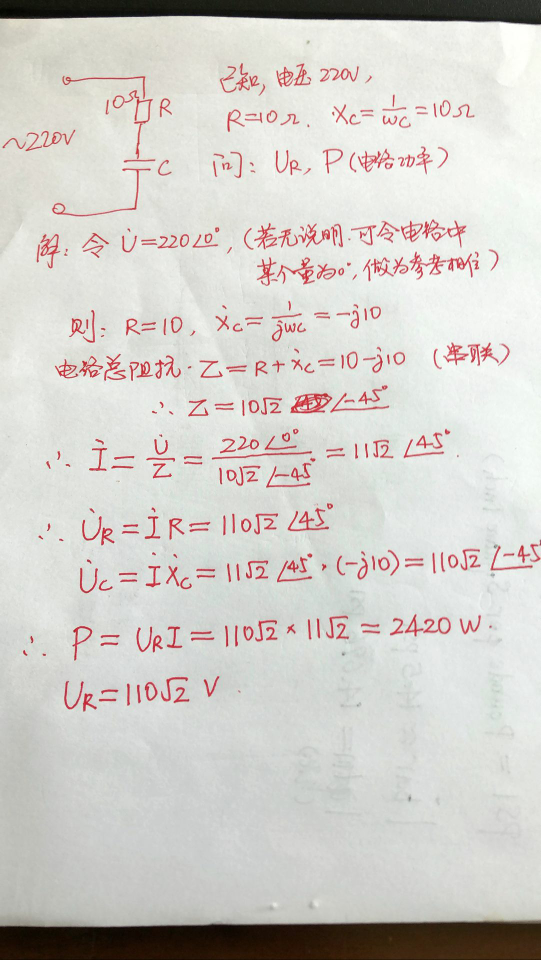 已知, 电压 220V,
10Ω R
R=10Ω. Xc=1/ωC=10Ω
~220V
C
问: UR, P (电路功率)
解: 令 U̇=220∠0°, (若无说明. 可令电路中
某个量为0°, 做为参考相位)
则: R=10, Ẋc=1/jωC=-j10
电路总阻抗. Z=R+Ẋc=10-j10 (串联)
∴ Z=10√2 ∠-45°
∴ İ=U̇/Z=220∠0°/10√2∠-45°=11√2 ∠45°.
∴ U̇R=İR=110√2 ∠45°
U̇c=İẊc=11√2 ∠45°·(-j10)=110√2 ∠-45°
∴ P=URI=110√2×11√2=2420W.
UR=110√2 V.